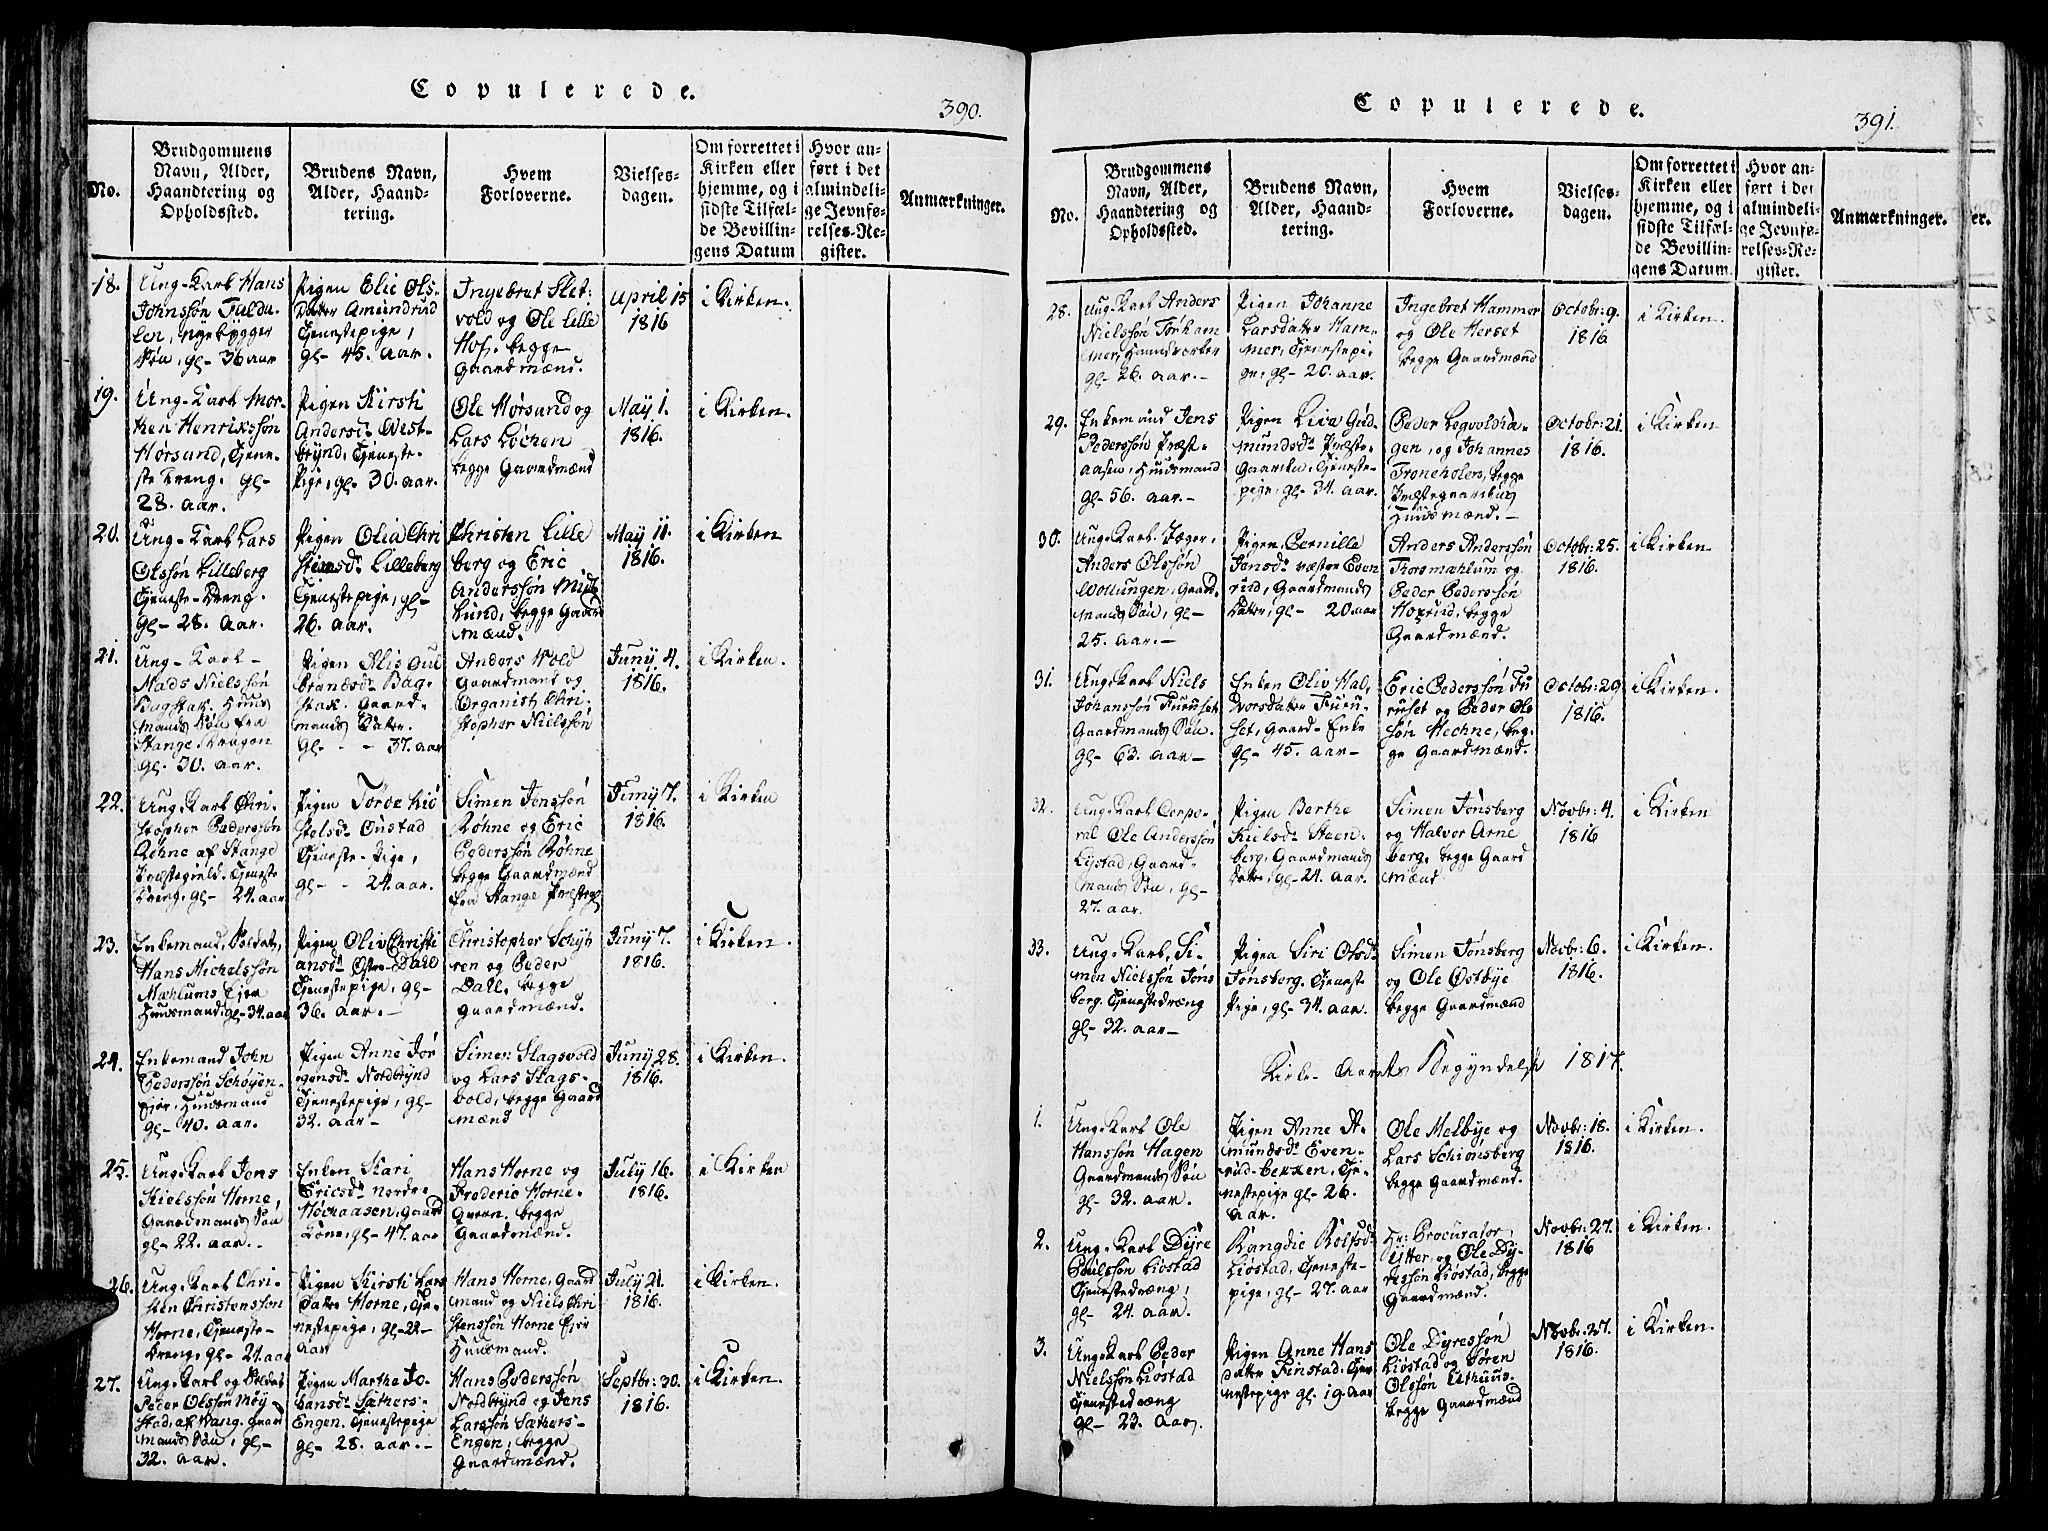 Copulerede.
390.
No.
Brudgommens
Navn, Alder,
Haandtering og
Opholdssted.
Brudens Navn,
Alder, Haand-
tering.
Hvem
Forloverne.
Vielses-
dagen.
Om forrettet i
Kirken eller
hjemme, og i
sidste Tilfæl-
de Bevillin-
gens Datum
Hvor an-
ført i det
almindeli-
ge Jevnfø-
relses-Re-
gister.
Anmærkninger.
18.
Ung-Karl Hans
Johnssøn Fulda-
len, nyebygger
Søn, gl- 36 aar
Pigen Elie Ols-
Datter Amundrud
Tjenestepige,
gl- 45. aar.
Ingebret Slet-
vold og Ole Lille
Hof. begge
gaardmænd.
April 15
1816
i Kirken.
19.
Ung-Karl Mor-
ten Henrikssøn
Hørsand, Tjene-
ste Dreng. gl-
28. aar.
Pigen Kirsti
Andersd: West-
bÿnd, Tjeneste-
Pige, gl- 30. aar.
Ole Hørsand og
Lars Løchen
begge Gaardmænd
May 1.
1816.
i Kirken.
20.
Ung-Karl Lars
Olssøn Lilleberg
Tjeneste-Dreng.
gl- 28. aar.
Pigen Olia Chri
stensd: Lilleberg
Tjenestepige, gl-
26. aar.
Christen Lille
berg og Eric
Anderssøn Midt
lund, begge Gaard
mænd.
May 11.
1816.
i Kirken
21.
Ung-Karl-
Mads Nielssøn
Bagstak. Huus
mands Søn fra
Stange. Dragon
gl. 30. aar.
Pigen Alis Gul
brandsd: Bag-
stak. Gaard-
mands Datter.
gl- - - 37. aar
Anders Wold
Gaardmand og
Organist Chri-
stopher Nielssøn
Juny 4.
1816.
i Kirken.
22.
Ung-Karl Chri-
stopher Pederssøn
Røhne af Stange
Præstegield. Tjeneste
Dreng. gl- 24. aar
Pigen Torøe Kiø
stelsd: Onstad
Tjeneste-Pige,
gl- - 24. aar.
Simen Jonssøn
Røhne og Eric
Pederssøn Røhne
begge Gaardmænd
fra Stange Præsteg.
Juny 7.
1816.
i Kirken
23.
Enkemand, Soldat,
Hans Michelssøn
Mæhlums Ejer
Huusmand, gl- 34. aar
Pigen Oliv Christi
ansd: Østre-Dall
Tjenestepige, gl-
36. aar.-
Christopher Schyb
ren og Peder
Dall. begge
gaardmænd.
Juny 7.
1816.
i Kirken.
24.
Enkemand John
Pederssøn Schøyen-
Ejer, Huusmand
gl- 40. aar.
Pigen Anne Jør
gensd: Nordbÿnd
Tjenestepige, gl-
32. aar-
Simen Slagsvold
og Lars Slags-
vold, begge Gaard
mænd
Juny 28.
1816.
i Kirken.
25.
Ung-Karl Jens
Kielssøn Horne,
Gaardmands Søn
gl- 22. aar.-
Enken Kari
Ericsd: Nordre-
Høeraasen, Gaard
Kone, gl- 47. aar
Hans Horne og
Frederic Horne-
Qvern. begge
Gaardmænd.
July 16.
1816.
i Kirken
26.
Ung-Karl Chri-
sten Christenssøn
Horne, Tjeneste-
Dreng, gl- 21. aar
Pigen Kirsti Lars
Datter Horne, Tje-
nestepige, gl- 22-
aar
Hans Horne, Gaard
mand og Niels Chri
stenssøn Horne Ejer
Huusmand.
July 21.
1816.
i Kirken.
27.
Ung-Karl og Soldat
Peder Olssøn Møy
stad, af Vang. Gaard
mands Søn, gl-
32. aar.
Pigen Marthe Jo-
hansd: Sæthers-
Engen. Tjenestepige
gl- 28. aar.-
Hans Pederssøn
Nordbÿnd og Jens
Larssøn Sæthers-
Engen, begge
Gaardsmænd.
Septbr: 30.
1816.
i Kirken.
Copulerede.
391.
No.
Brudgommens
Navn, Alder,
Haandtering og
Opholdssted.
Brudens Navn,
Alder, Haand-
tering.
Hvem
Forloverne.
Vielses-
dagen.
Om forrettet i
Kirken eller
hjemme, og i
sidste Tilfæl-
de Bevillin-
gens Datum.
Hvor an-
ført i det
almindeli-
ge Jevnfø-
relses-Re-
gister.
Anmærkninger.
er.
28.
Ung-Karl Anders
Nielssøn Torham
mer, Haandværker
gl- 26. aar.-
Pigen Johanne
Larsdatter Ham-
mer, Tjenestepi-
ge, gl- 20. aar.
Ingebret Hammer
og Ole Herset
begge Gaardmænd
October: 9.
1816
i Kirken.
29.
Enkemand Jens
Pederssøn Præst-
aasen, Huusmand
gl- 56. aar.-
Pigen Lisa Gud-
mundsd: Præste-
Gaarden, Tjeneste-
pige, gl- 34. aar.
Peder Legvoldha-
gen, og Johannes
Troneholen, begge
Præstegaardens
Huusmænd.-
Octobr: 21.
1816.
i Kirken
30.
Ung-Karl. Jæger,
Anders Olssøn
Wollungen, Gaard-
mands Søn, gl-
25. aar.-
Pigen Pernille
Jensd: Væstre Even
rud, Gaardmands
Datter, gl- 20 aar
Anders Anderssøn
Thorsmæhlum og
Peder Pederssøn
Hoxrud, begge
Gaardmænd.
Octobr: 25.
1816.
i Kirken
31.
Ung-Karl Niels
Johanssøn Furuset
Gaardmands Søn.
gl- 63. aar-
Enken Oliv Hal-
vorsdatter Furu-
set, Gaard-Enke
gl- 45. aar-
Eric Pederssøn Fu
ruset og Peder Ole
søn Hechne, beg-
ge Gaardmænd.
Octobr: 29
1816.
i Kirken.
32.
Ung-Karl Corpo-
ral Ole Anderssøn
Lystad, Gaard-
mands Søn, gl-
27. aar.
Pigen Berthe
Kielsd: Steen-
berg, Gaardmands
Datter, gl- 24. aar.
Simen Jønsberg
og Halvor Arne
berg, begge Gaard
mænd
Novbr: 4.
1816
i Kirken
33.
Ung-Karl, Si-
men Nielssøn Jøns
berg. Tjenestedræng
gl- 32. aar-
Pigen Siri Olsd:
Jønsberg. Tjeneste
Pige, gl- 34. aar.
Simen Jønsberg
og Ole Østbye
begge Gaardmænd
Novbr: 6.
1816.
i Kirken.
Kirke-Aarets Begyndelse 1817.
1.
Ung-Karl Ole
Hanssøn Hagen
Gaardmands Søn
gl- 32. aar.
Pigen Anne A-
mundsd: Even-
rud-bekken, Tje-
nestepige gl- 26.
aar.
Ole Melbye og
Lars Schiønsberg
begge Gaardmænd.
Novbr: 18.
1816.
i Kirken.
2.
Ung-Karl Dyre
Povlssøn Liøstad
Tjenestedræng,
gl- 24. aar.
Rangdie Rolfsd:
Liøstad, Tjeneste-
pige, gl- 27. aar
Hr: Procurator
Utter og Ole Dy-
ressøn Liøstad, begge
Gaardmænd.
Novbr: 27.
1816
i Kirken.
3.
Ung-Karl Peder
Nielssøn Liøstad
Tjenestedræng
gl- 23. aar.
Pigen Anne Hans
datter Finstad. Tje-
nestepige gl. 19 aar
Ole Dyressøn
Liøstad og Søren
Olssøn Uthuus.
begge Gaardmænd
Novbr: 27.
1816.
i Kirken.